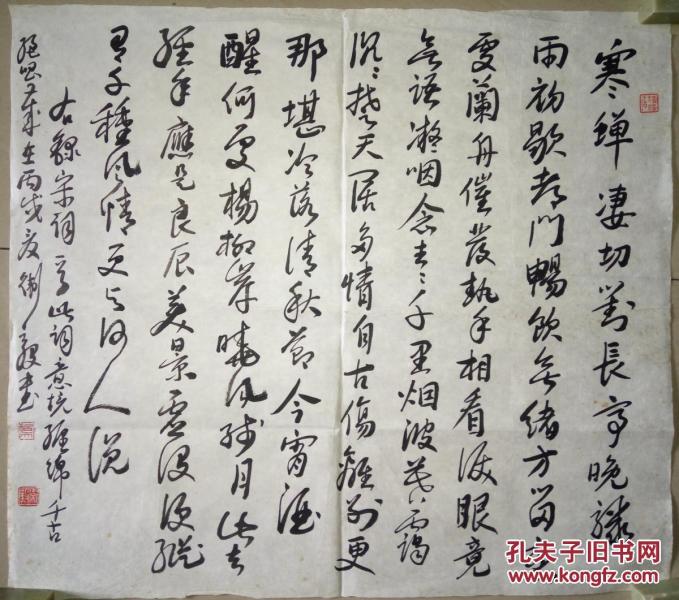 寒蝉凄切對長亭晚驟
雨初歇都門暢飲無緒方留恋
處蘭舟催發執手相看淚眼竟
無語凝咽念去々千里烟波暮靄
沉々楚天闊多情自古傷離別更
那堪冷落清秋節今宵酒
醒何處楊柳岸曉風殘月此去
經年應是良辰美景虛設便縱
有千種風情更與何人說
右錄宋詞 此詞意境纏綿千古
絕唱 歲在丙戌夏 書
孔夫子旧书网
www.kongfz.com